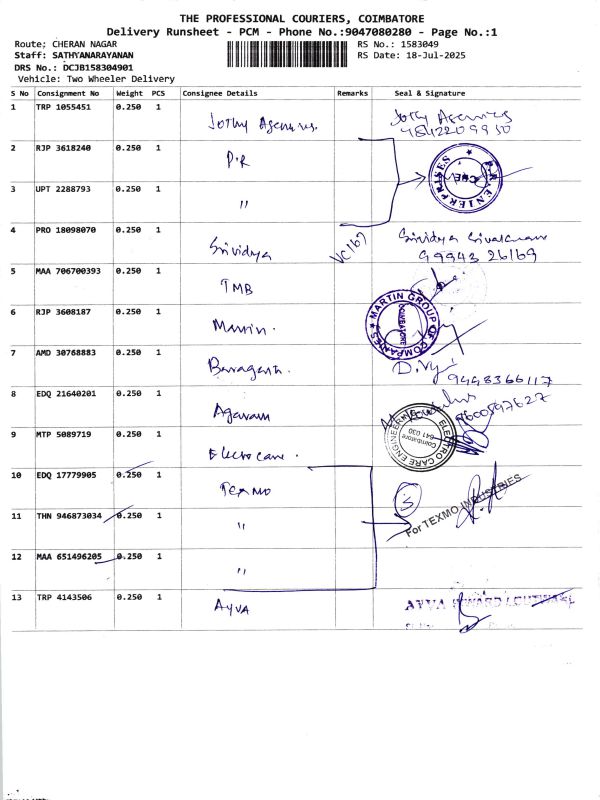 THE PROFESSIONAL COURIERS, COIMBATORE
Delivery Runsheet - PCM - Phone No.:9047080280 - Page No.:1
Route; CHERAN NAGAR RS No.: 1583049
Staff: SATHYANARAYANAN RS Date: 18-Jul-2025
DRS No.: DCJB158304901
Vehicle: Two Wheeler Delivery
S No Consignment No Weight PCS Consignee Details Remarks Seal & Signature
1 TRP 1055451 0.250 1 Jothy Agencies. Jothy Agencies
9842209950
2 RJP 3618240 0.250 1 P.R
P.R. ENTERPRISES CBE
3 UPT 2288793 0.250 1 "
4 PRO 18098070 0.250 1 Srividya VC167 Srividya Sivakumar
99943 26169
5 MAA 706700393 0.250 1 TMB
6 RJP 3608187 0.250 1 Martin.
MARTIN GROUP OF COMPANIES COIMBATORE
7 AMD 30768883 0.250 1
9498366117
8 EDQ 21640201 0.250 1 Agaram
9600597627
9 MTP 5089719 0.250 1 Electro care.
ELECTRO CARE ENGINEER Coimbatore 641 030
10 EDQ 17779905 0.250 1 Texmo
11 THN 946873034 0.250 1 " 3 For TEXMO INDUSTRIES
12 MAA 651496205 0.250 1 "
13 TRP 4143506 0.250 1 Ayva AYVA